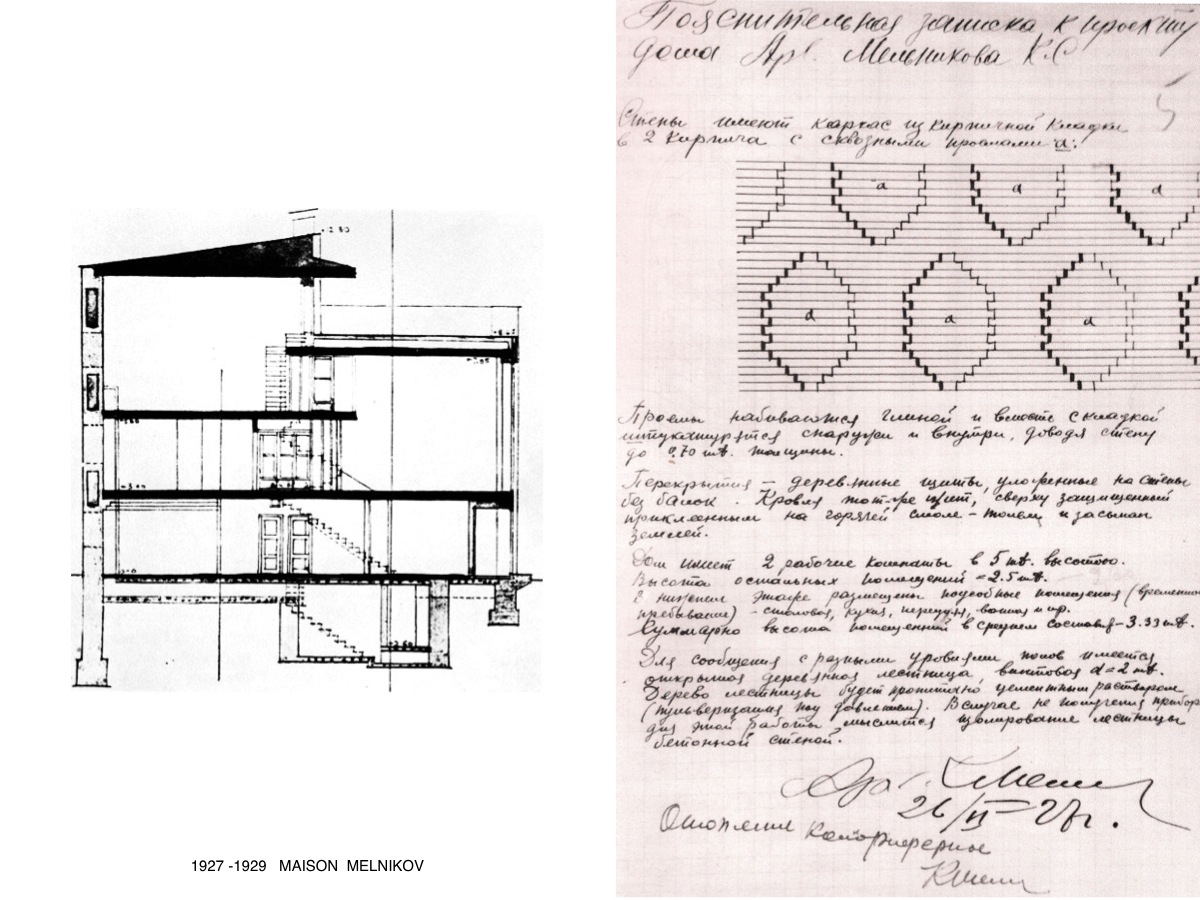 1927 -1929 MAISON MELNIKOV
Пояснительная записка к проекту
дома Арх. Мельникова К.С
Стены имеют каркас из кирпичной кладки
в 2 кирпича с сквозными проемами "а".
а а а
а а а
Проемы набиваются глиной и вместе с кладкой
штукатурятся снаружи и внутри, доводя стену
до 0.70 mt. толщины.
Перекрытия – деревянные щиты, уложенные на стены
без балок. Кровля тот-же щит, сверху защищенный
приклеенным на горячей смоле – толем и засыпан
землей.
Дом имеет 2 рабочие комнаты в 5 mt. высотою.
Высота остальных помещений = 2.5 mt.
В нижнем этаже размещены подсобные помещения (временного
пребывания) – столовая, кухня, передняя, ванная и пр.
Суммарно высота помещений в среднем составл – 3.33 mt.
Для сообщения с разными уровнями полов имеется
открытая деревянная лестница, винтовая d = 2 mt.
Дерево лестницы будет пропитано цементным раствором
(пульверизация под давлением). В случае не получения прибора
для этой работы мыслится изолирование лестницы
бетонной стеной.
Арх. КМель
26/VI–27г.
Отопление калориферное
КМель